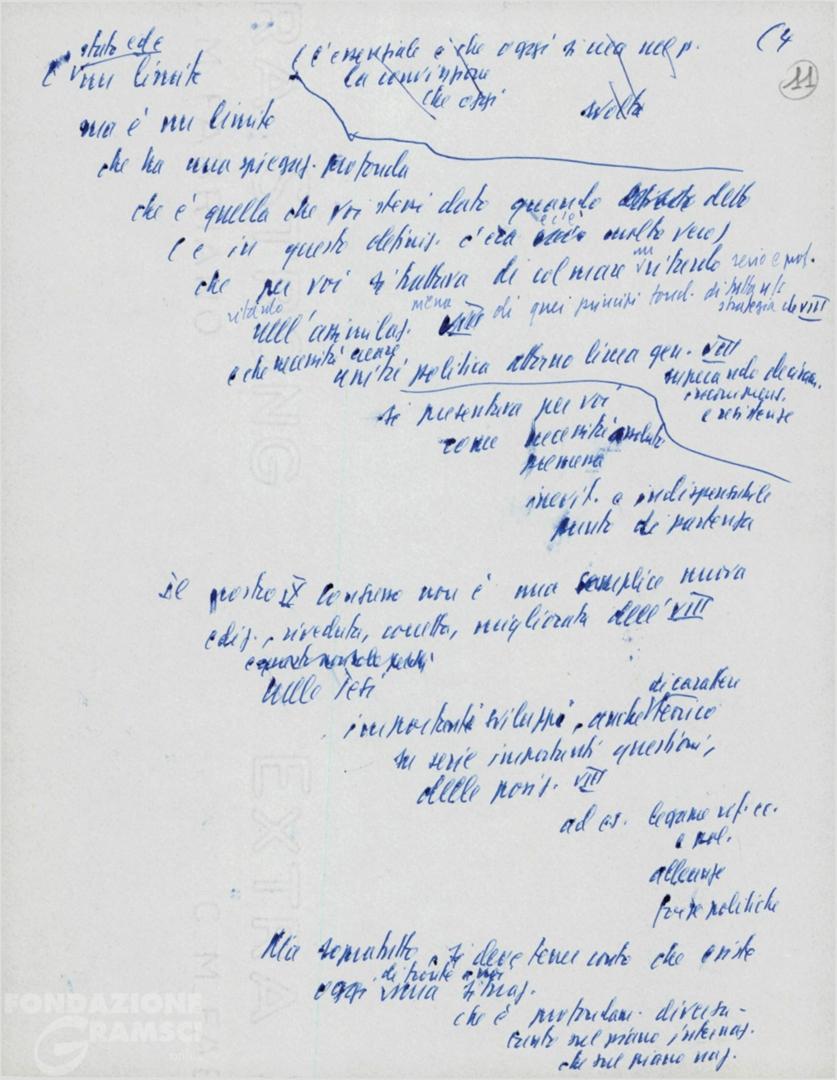 (4
11
stato ed è
è un limite
(c'essenziale è che oggi si sia nel p.
la convinzione
che oggi
svolta
ma è un limite
che ha una spiegaz. profonda
che è quella che voi stessi dato quando detto
(e in questo definiz. c'era molto vero)
che per voi si trattava di colmare un ritardo serio e prof.
ritardo nell'assimilaz. VIII di quei principi fond. di tutta ns strategia che VIII
e che necessità creare unità politica attorno linea gen. VIII
superando
e resistenze
si presentava per voi
come necessità assoluta
premessa
inevit. e indispensabile
punto di partenza
Il nostro IX Congresso non è una semplice nuova
ediz., riveduta, corretta, migliorata dell'VIII
nelle Tesi
importanti sviluppi, anche di carattere teorico
su serie importanti questioni,
delle posiz. VIII
ad es. legame rif. ec.
e pol.
alleanze
forze politiche
Ma soprattutto si deve tener conto che esiste
oggi di fronte a noi una situaz.
che è profondam. diversa -
tanto sul piano internaz.
che sul piano naz.
FONDAZIONE
GRAMSCI
EXTRA